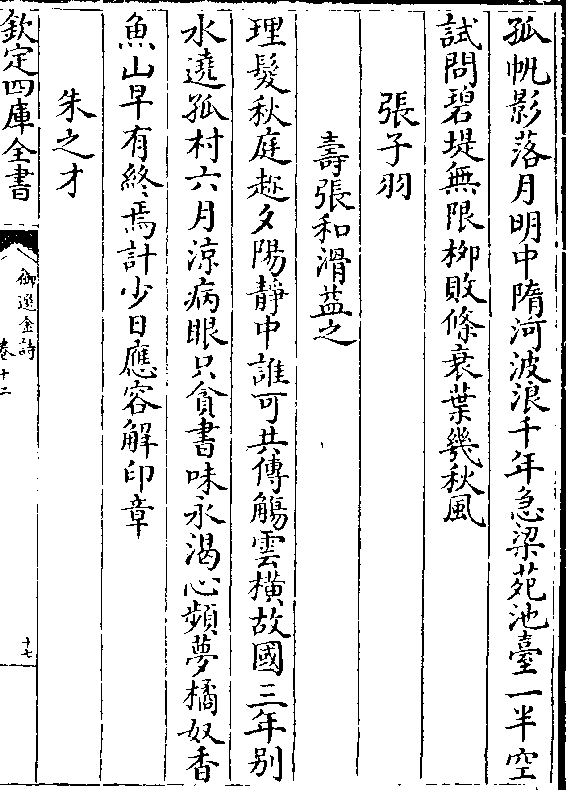 孤帆影落月明中隋河波浪千年急梁苑池臺一半空
試問碧堤無限栁敗條衰葉幾秋風
張子羽
壽張和滑益之
理髮秋庭趂夕陽靜中誰可共傳觴雲橫故國三年别
水遶孤村六月涼病眼只貪書味永渴心頻夢橘奴香
魚山早有終焉計少日應容解印章
朱之才
欽定四庫全書
御選金詩
卷十二
十七